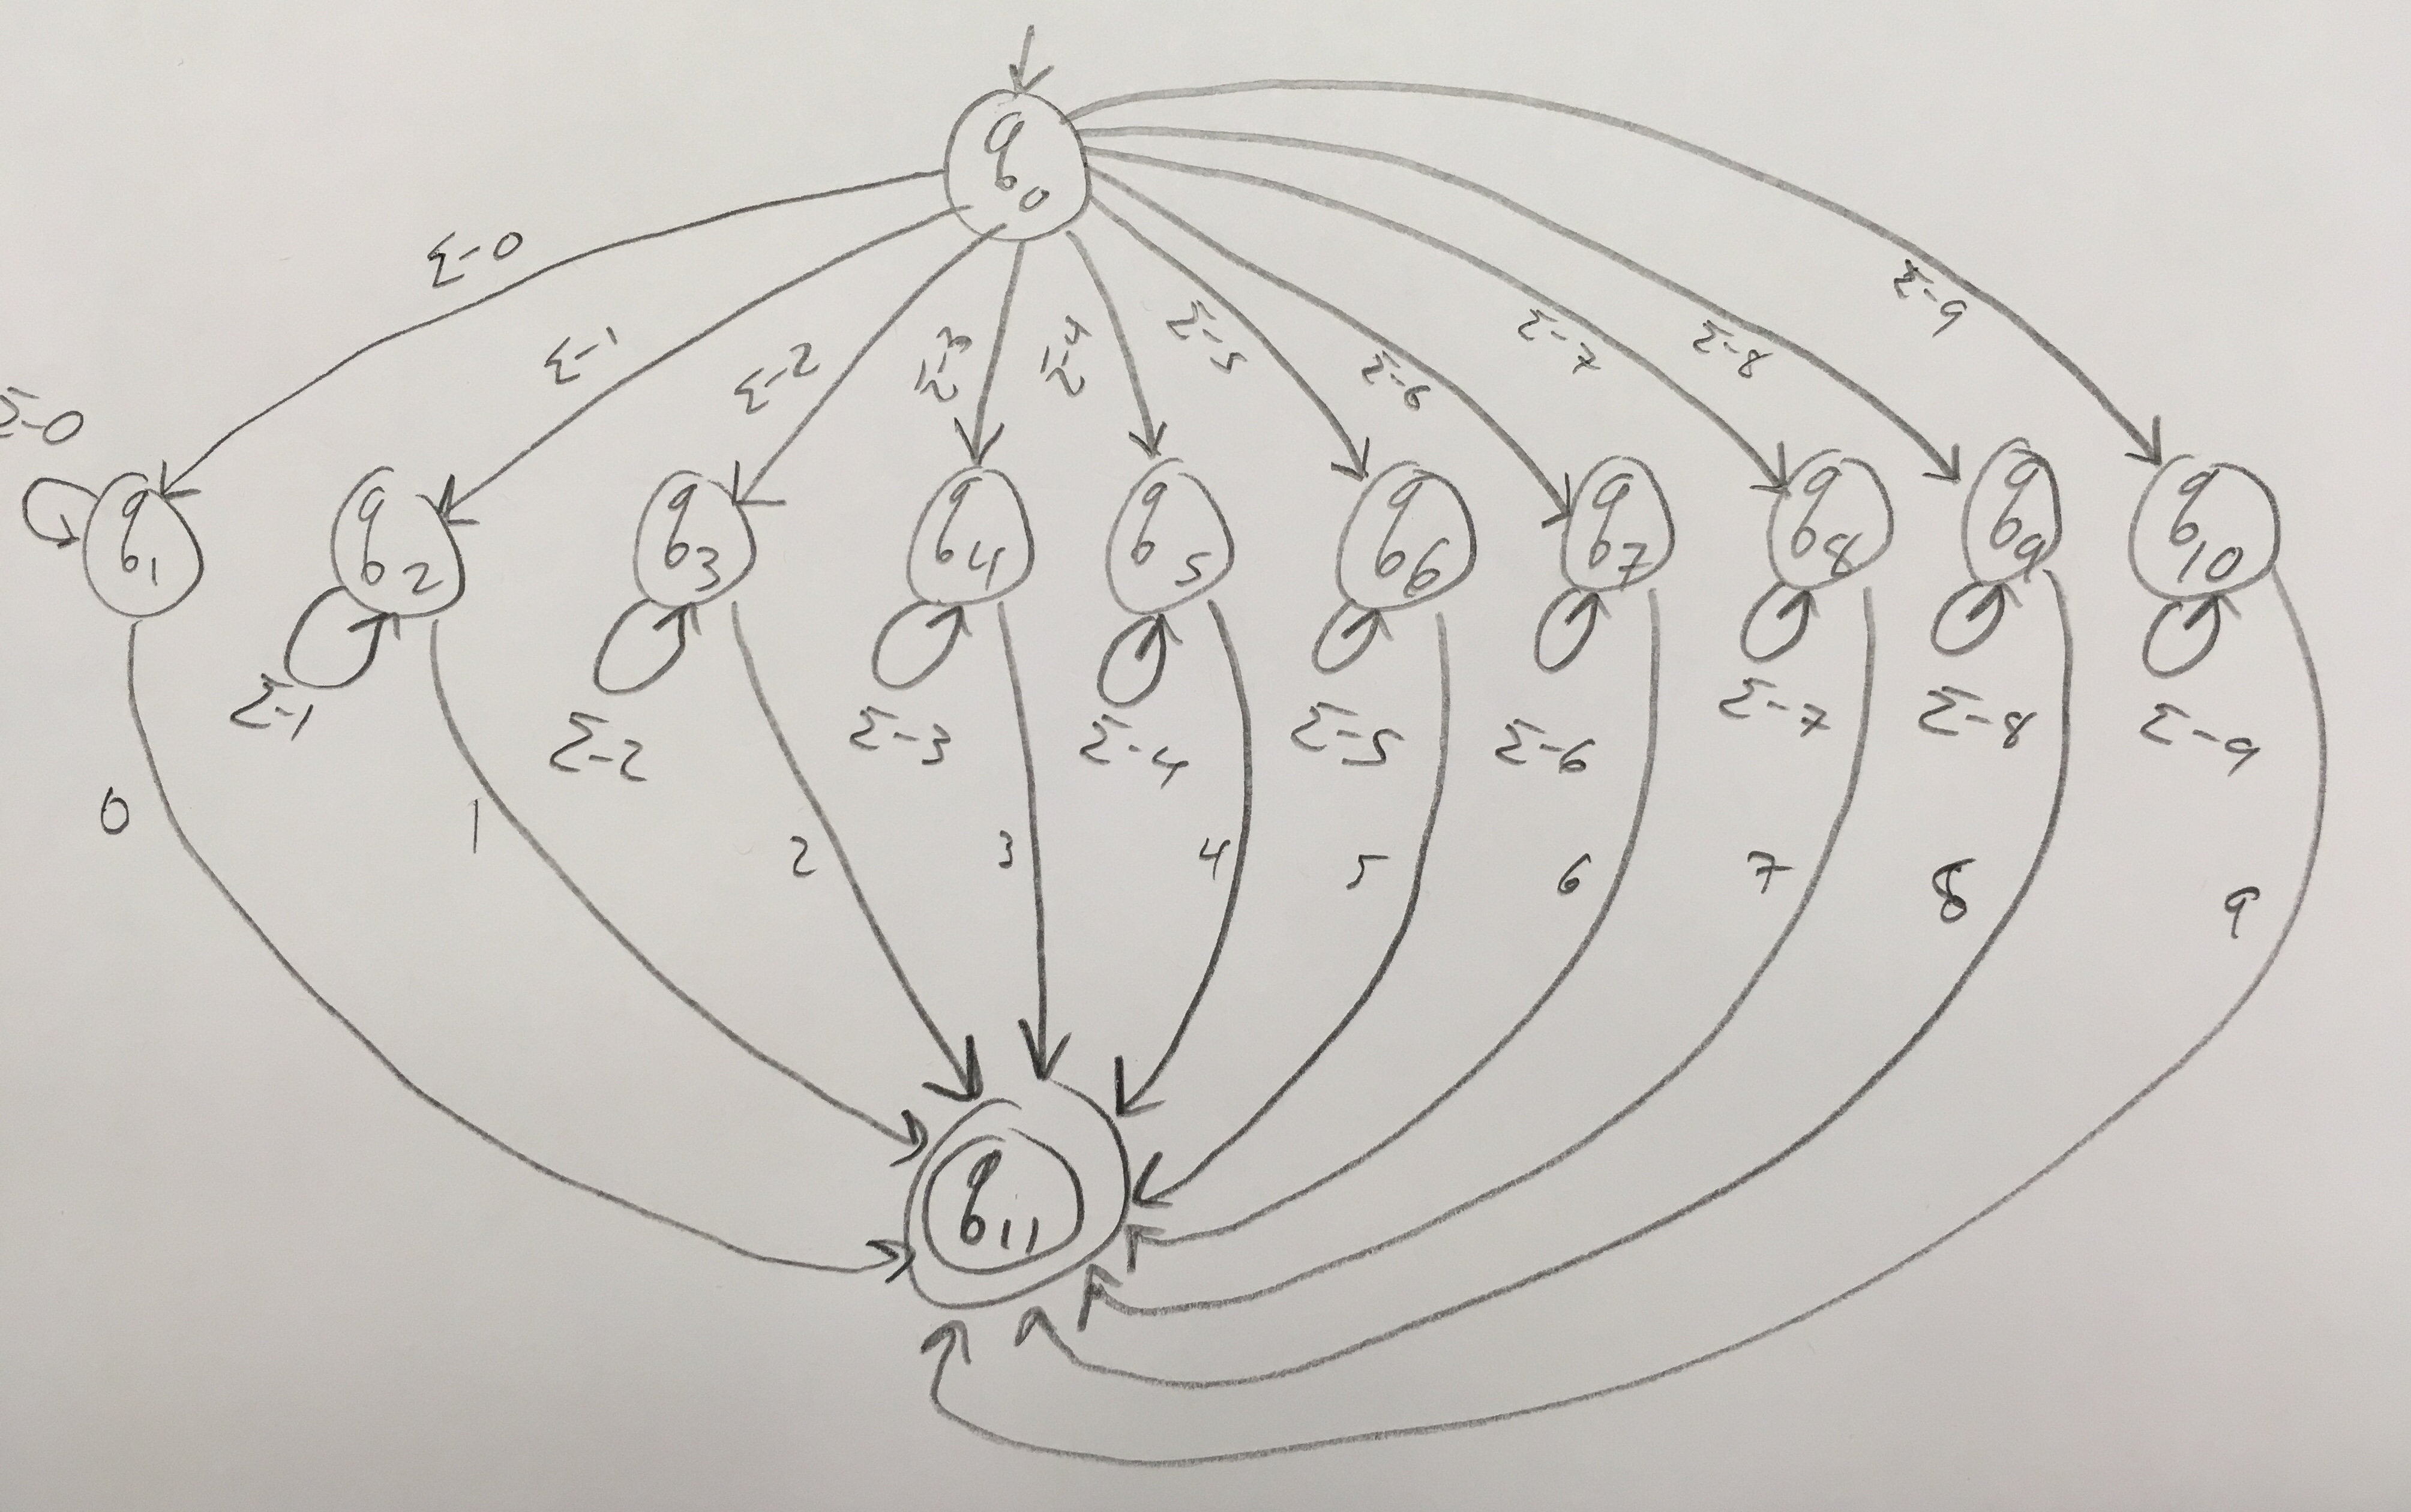 q0
Σ-0
Σ-1
Σ-2
Σ-3
Σ-4
Σ-5
Σ-6
Σ-7
Σ-8
Σ-9
Σ-0
q1
q2
q3
q4
q5
q6
q7
q8
q9
q10
Σ-1
Σ-2
Σ-3
Σ-4
Σ-5
Σ-6
Σ-7
Σ-8
Σ-9
0
1
2
3
4
5
6
7
8
9
q11